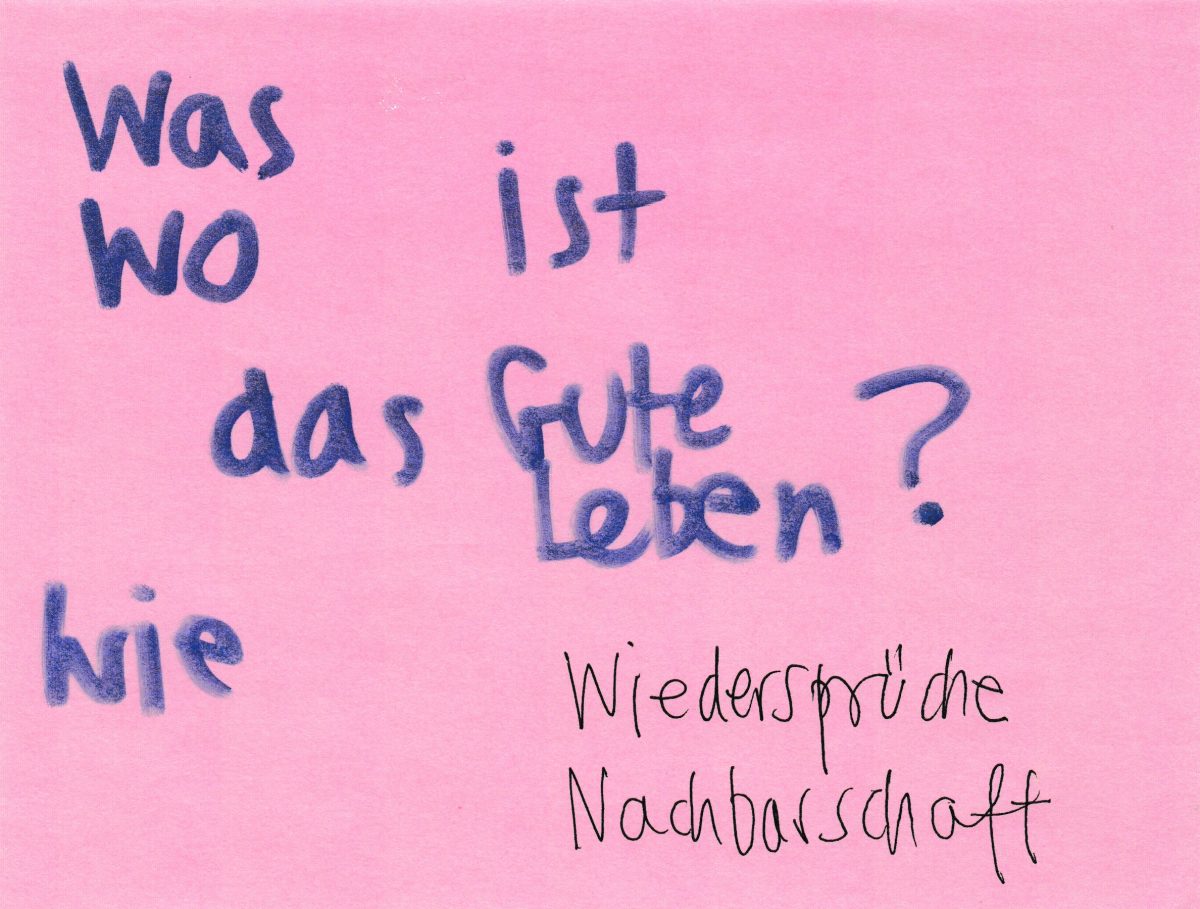 Was
Wo
ist
das Gute
Leben?
Wie
Wiedersprüche
Nachbarschaft